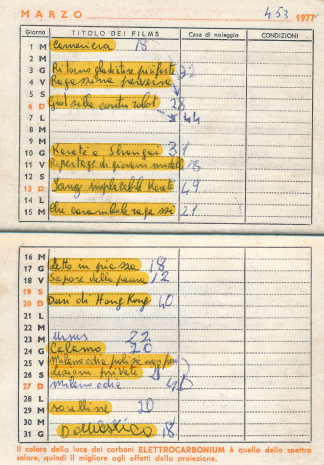 MARZO 453 1977
Giorno TITOLO DEI FILMS Casa di noleggio CONDIZIONI
1 M Cameriera 18
2 M
3 G Ritorno gladiatore più forte 22
4 V Ragazzina perversa
5 S
6 D Godzilla contro robot 28
7 L 44
8 M
9 M
10 G Karatè a Shangai 31
11 V Reportage di giovani modelle 18
12 S
13 D Jang Karatè 49
14 L
15 M Che carambole ragazzi 21
16 M
17 G letto in piazza 18
18 V Sapore della paura 12
19 S
20 D Dan di Hong Kong 40
21 L
22 M
23 M ursus 22
24 G Calamo 20
25 V Milano odia polizia non può
26 S lezioni private
27 D Milano odia
28 L
29 M 20
30 M
31 G Domestico 18
Il colore della luce dei carboni ELETTROCARBONIUM è quello dello spettro
solare, quindi il migliore agli effetti della proiezione.